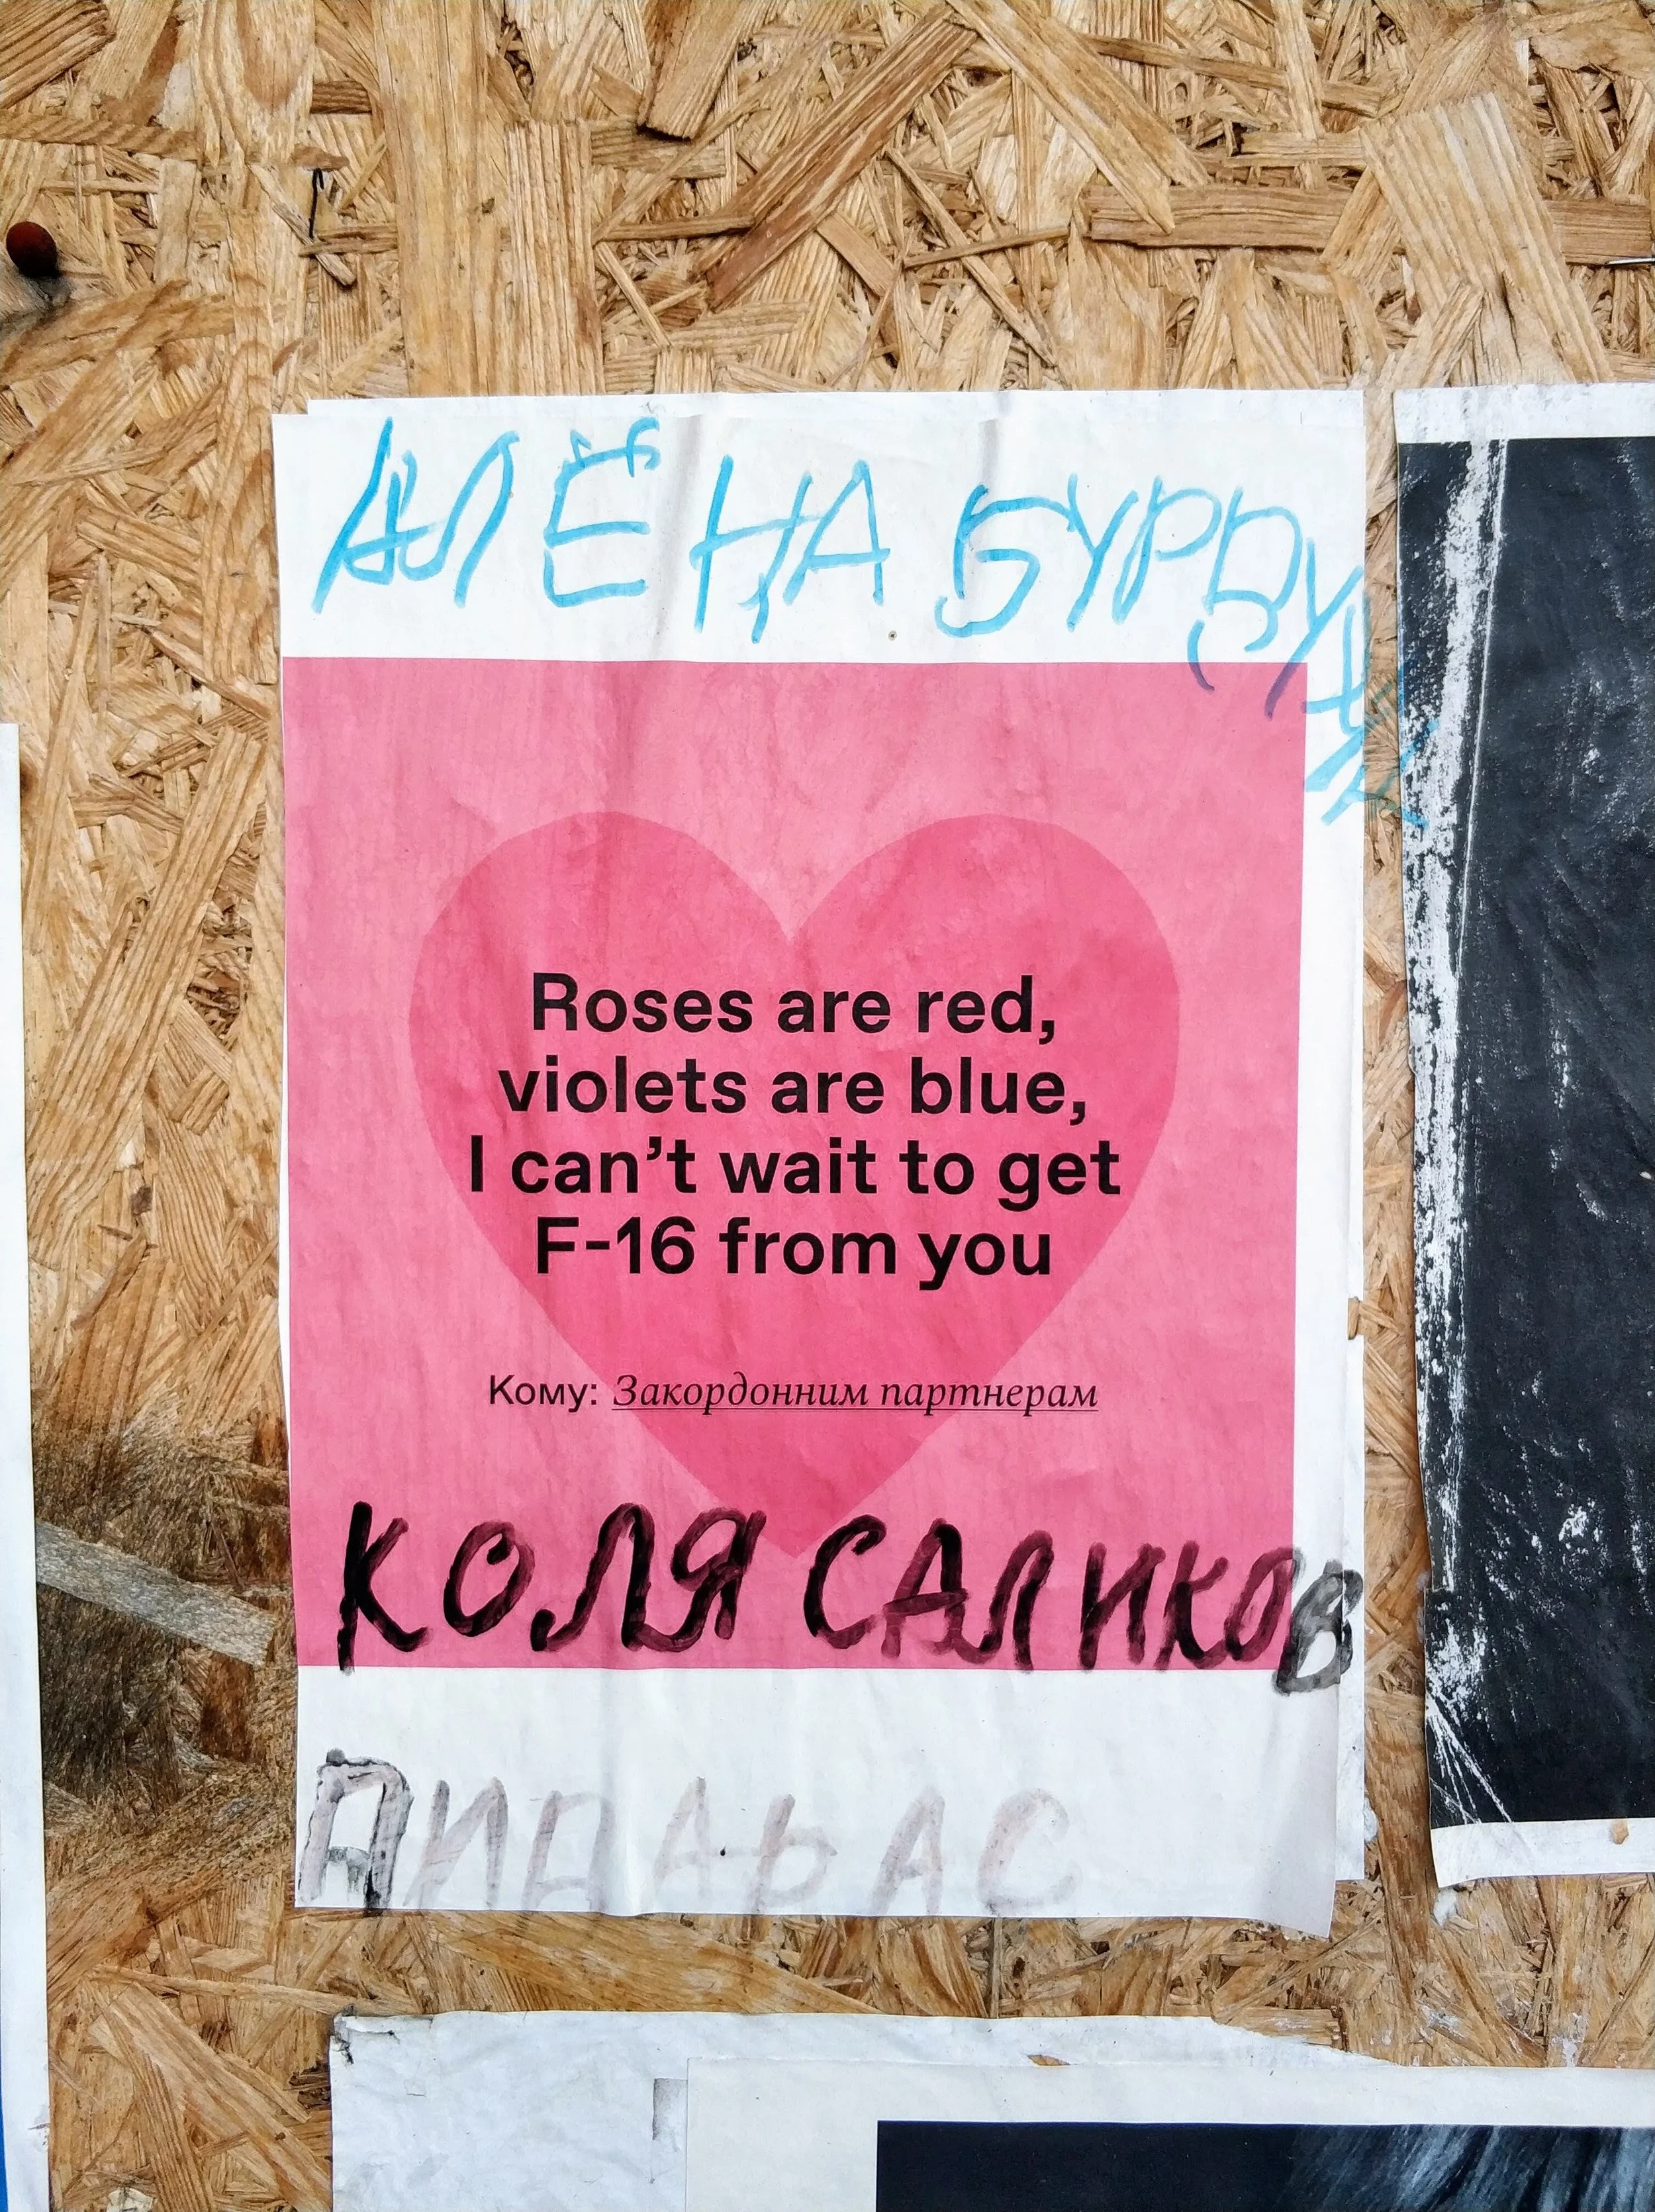 АЛЁНА
Roses are red,
violets are blue,
I can’t wait to get
F-16 from you
Кому: Закордонним партнерам
КОЛЯ САЛИКОВ